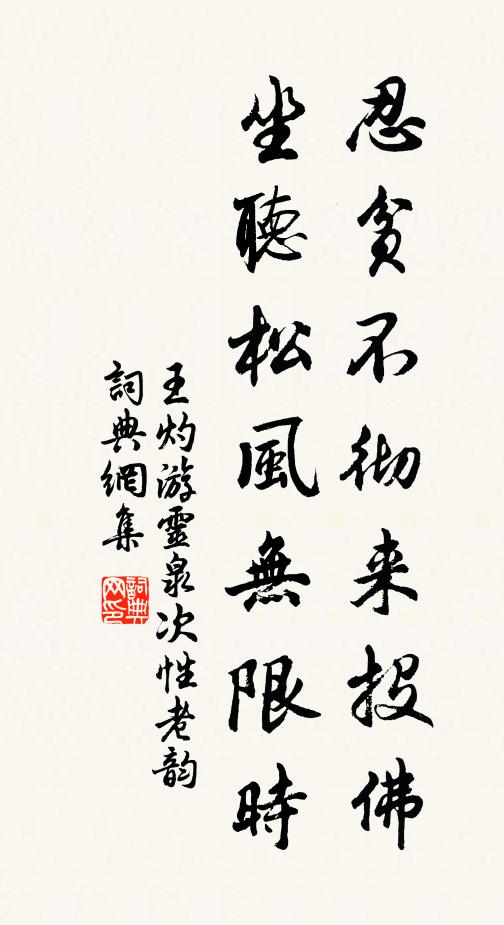 忍贫不彻来投佛
坐聽松風無限時
王灼游靈泉次性老韵
詞典網集
詞典網印